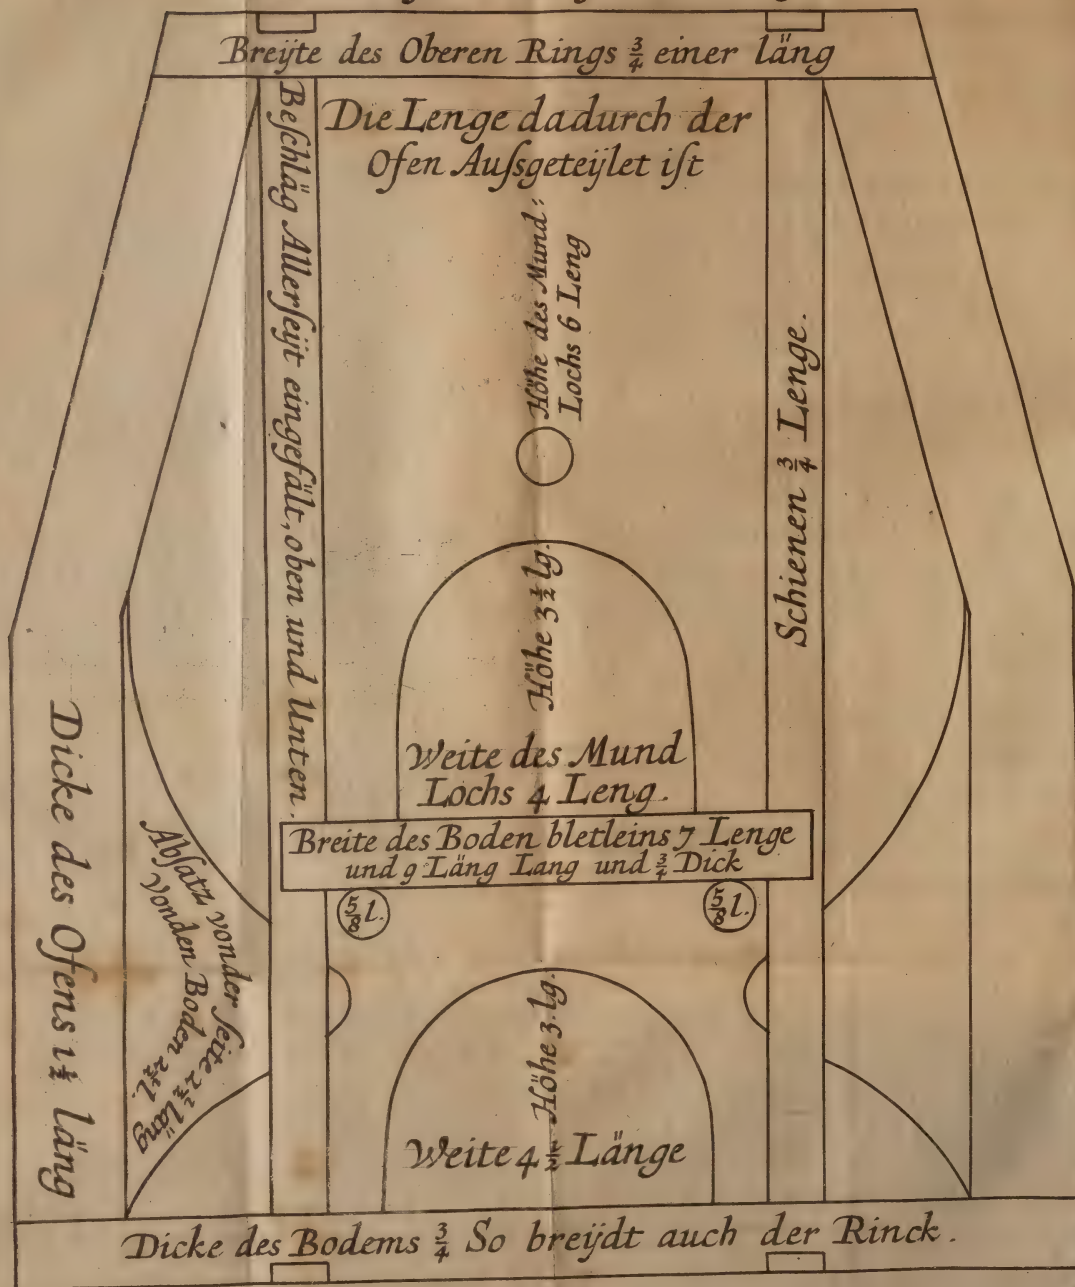 Breÿte des Oberen Rings ¾ einer läng
Beſchläg Allerſeÿt eingefält, oben und Unten.
Die Lenge dadurch der
Ofen Auſsgeteÿlet iſt
Höhe des Mund⸗
Lochs 6 Leng
Schienen ¾ Lenge.
Höhe 3½ lg.
Weite des Mund
Lochs 4 Leng.
Breite des Boden bletleins 7 Lenge
und 9 Läng Lang und ¾ Dick
⅝ l.
⅝ l.
Dicke des Ofens 1½ läng
Abſatz von der ſeite 2½ läng
Von den Boden 2½ l.
Höhe 3. lg.
Weite 4½ Länge
Dicke des Bodems ¾ So breÿdt auch der Rinck.